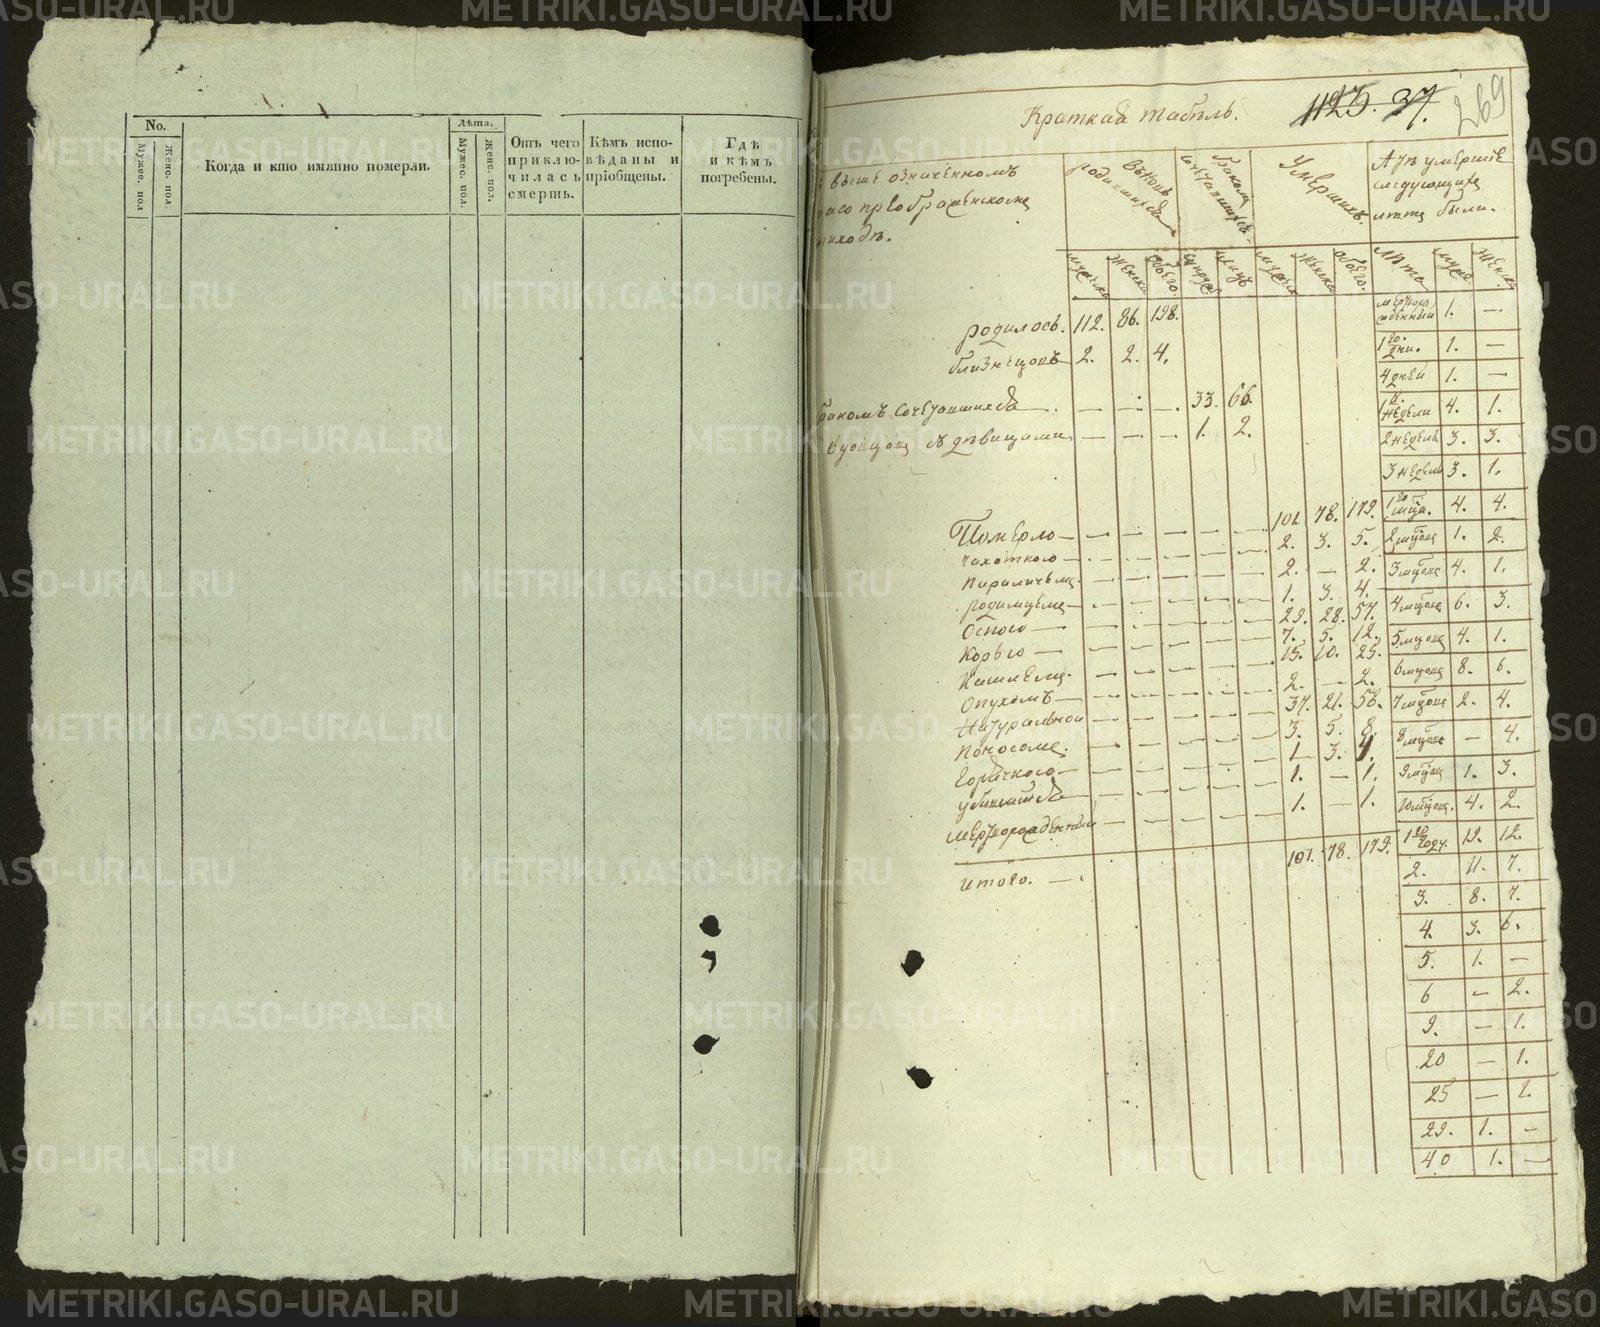 METRIKI.GASO-URAL.RU
No.
Лѣта.
Мужес. пол
Женс. пол.
Когда и кто имянно померли.
Мужес. пол.
Женс. пол.
Отъ чего
приклю-
чилась
смерть.
Кѣмъ испо-
вѣданы и
пріобщены.
Гдѣ
и кѣмъ
погребены.
Краткая табѣль.
1123. 37.
269
выше означенномъ
преображенскомъ
приходѣ.
Умершихъ.
А умершіе
слѣдующихъ
лѣтъ были.
Лѣта
мужес
женск
родилось. 112. 86. 198.
близнецовъ 2. 2. 4.
бракомъ сочетавшихся — — — 33. 66.
вдовцовъ съ дѣвицами — — — 1. 2.
Померло — — — — — — 101. 78. 179.
чахоткою — — — — — — 2. 3. 5.
параличемъ — — — — — — 2. — 2.
родимцемъ — — — — — — 1. 3. 4.
Оспою — — — — — — 29. 28. 57.
Корью — — — — — — 7. 5. 12.
Кашлемъ — — — — — — 15. 10. 25.
Опухолью — — — — — — 2. — 2.
Натуральной — — — — — — 37. 21. 58.
Поносомъ — — — — — — 3. 5. 8.
Горячкою — — — — — — 1 — 3. 4.
убивства — — — — — — 1. — 1.
мертворожденный — — — — — — 1. — 1.
итого. — 101. 78. 179.
мертворо
жденный 1. —
1го дни. 1. —
4 дней 1. —
1й недели 4. 1.
2 недели 3. 3.
3 недели 3. 1.
1го мца. 4. 4.
2 мцовъ 1. 2.
3 мцовъ 4. 1.
4 мцовъ 6. 3.
5 мцовъ 4. 1.
6 мцовъ 8. 6.
7 мцовъ 2. 4.
8 мцовъ — 4.
9 мцовъ 1. 3.
10 мцовъ. 4. 2.
1го году. 19. 12.
2. 11. 7.
3. 8. 7.
4. 3. 6.
5. 1. —
6 — 2.
9. — 1.
20 — 1.
25 — 1.
29. 1. —
40 1. —